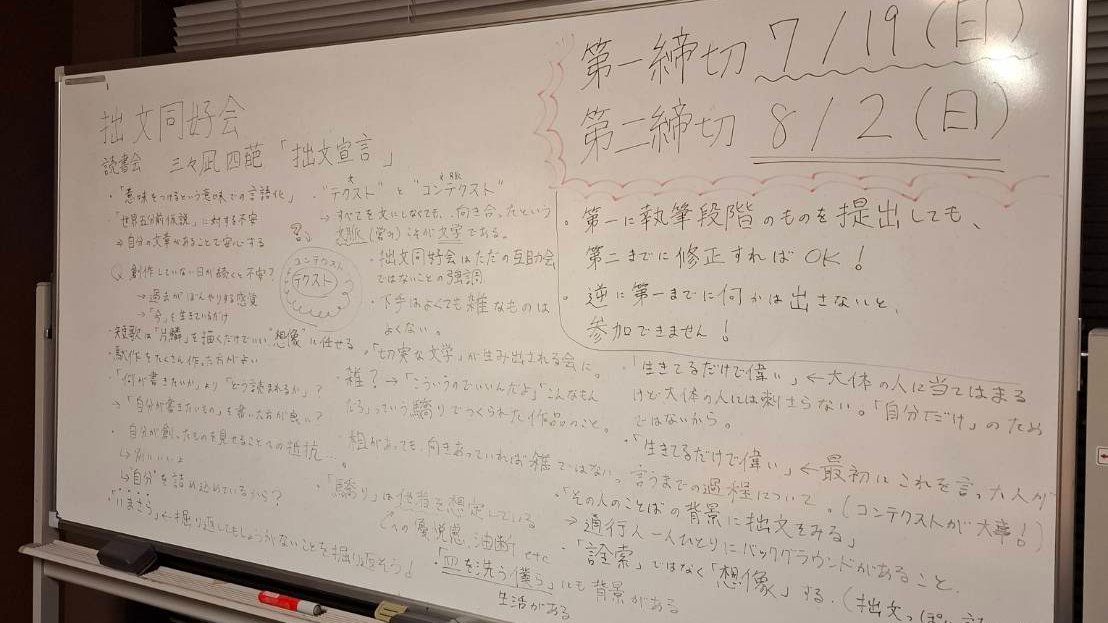 第一締切 7/19(日)
第二締切 8/2(日)
拙文同好会
読書会 三々凪四葩「拙文宣言」
・「意味をつけるという意味での言語化」
・「世界五分前仮説」に対する不安
⇒自分の文章があることで安心する
Q 創作していない日が続くと不安?
→過去がぼんやりする感覚
→「今」を生きているだけ
・短歌は「片鱗」を描くだけでいい "想像"に任せる
・駄作をたくさん作った方がよい
・「何が書きたいか」より「どう読まれるか」?
→「自分が書きたいもの」を書いた方が良い?
・自分が創ったものを見せることへの抵抗…。
↳"自分"を詰め込めているから?
・"いまさら"←掘り返してもしょうがないことを掘り返そう!
・"テクスト"と"コンテクスト"
文 文脈
↳すべてを文にしなくても、向き合ったという
文脈(営み)こそが文学である。
コンテクスト
テクスト
・拙文同好会はただの互助会
ではないことの強調
・下手はよくても雑なものは
よくない。
・「切実な文学」が生み出される会に。
雑?→「こういうのでいいんだよ」「こんなもん
だろ」っていう驕りでつくられた作品のこと。
粗があっても、向きあっていれば雑ではない。
・「驕り」は他者を想定している
への優越感、油断 etc
・「皿を洗う僕ら」にも背景がある
生活がある
・第一に執筆段階のものを提出しても、
第二までに修正すればOK!
・逆に第一までに何かは出さないと、
参加できません!
・「生きてるだけで偉い」←大体の人に当てはまる
けど大体の人には刺さらない。「自分だけ」のため
ではないから。
・「生きてるだけで偉い」←最初にこれを言った人が
言うまでの過程について。(コンテクストが大事!)
・「その人のことばの背景に拙文をみる」
→通行人一人ひとりにバックグラウンドがあること。
・「詮索」ではなく「想像」する。(拙文っぽい